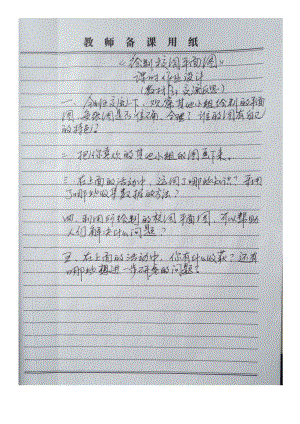 教师备课用纸
《绘制校园平面图》
课时作业设计
(教材 交流反思)
一、全班交流下,观察其他小组绘制的平面
图,每张图是否准确、合理?谁的图有自己
的特色?
二、把你喜欢的其他小组的图画下来。
三、在上面的活动中,运用了哪些方法?采用
了哪些收集数据的方法?
四、利用所绘制的校园平面图,可以帮助
人们解决什么问题?
五、在上面的活动中,你有什么收获?还有
哪些想进一步研究的问题?